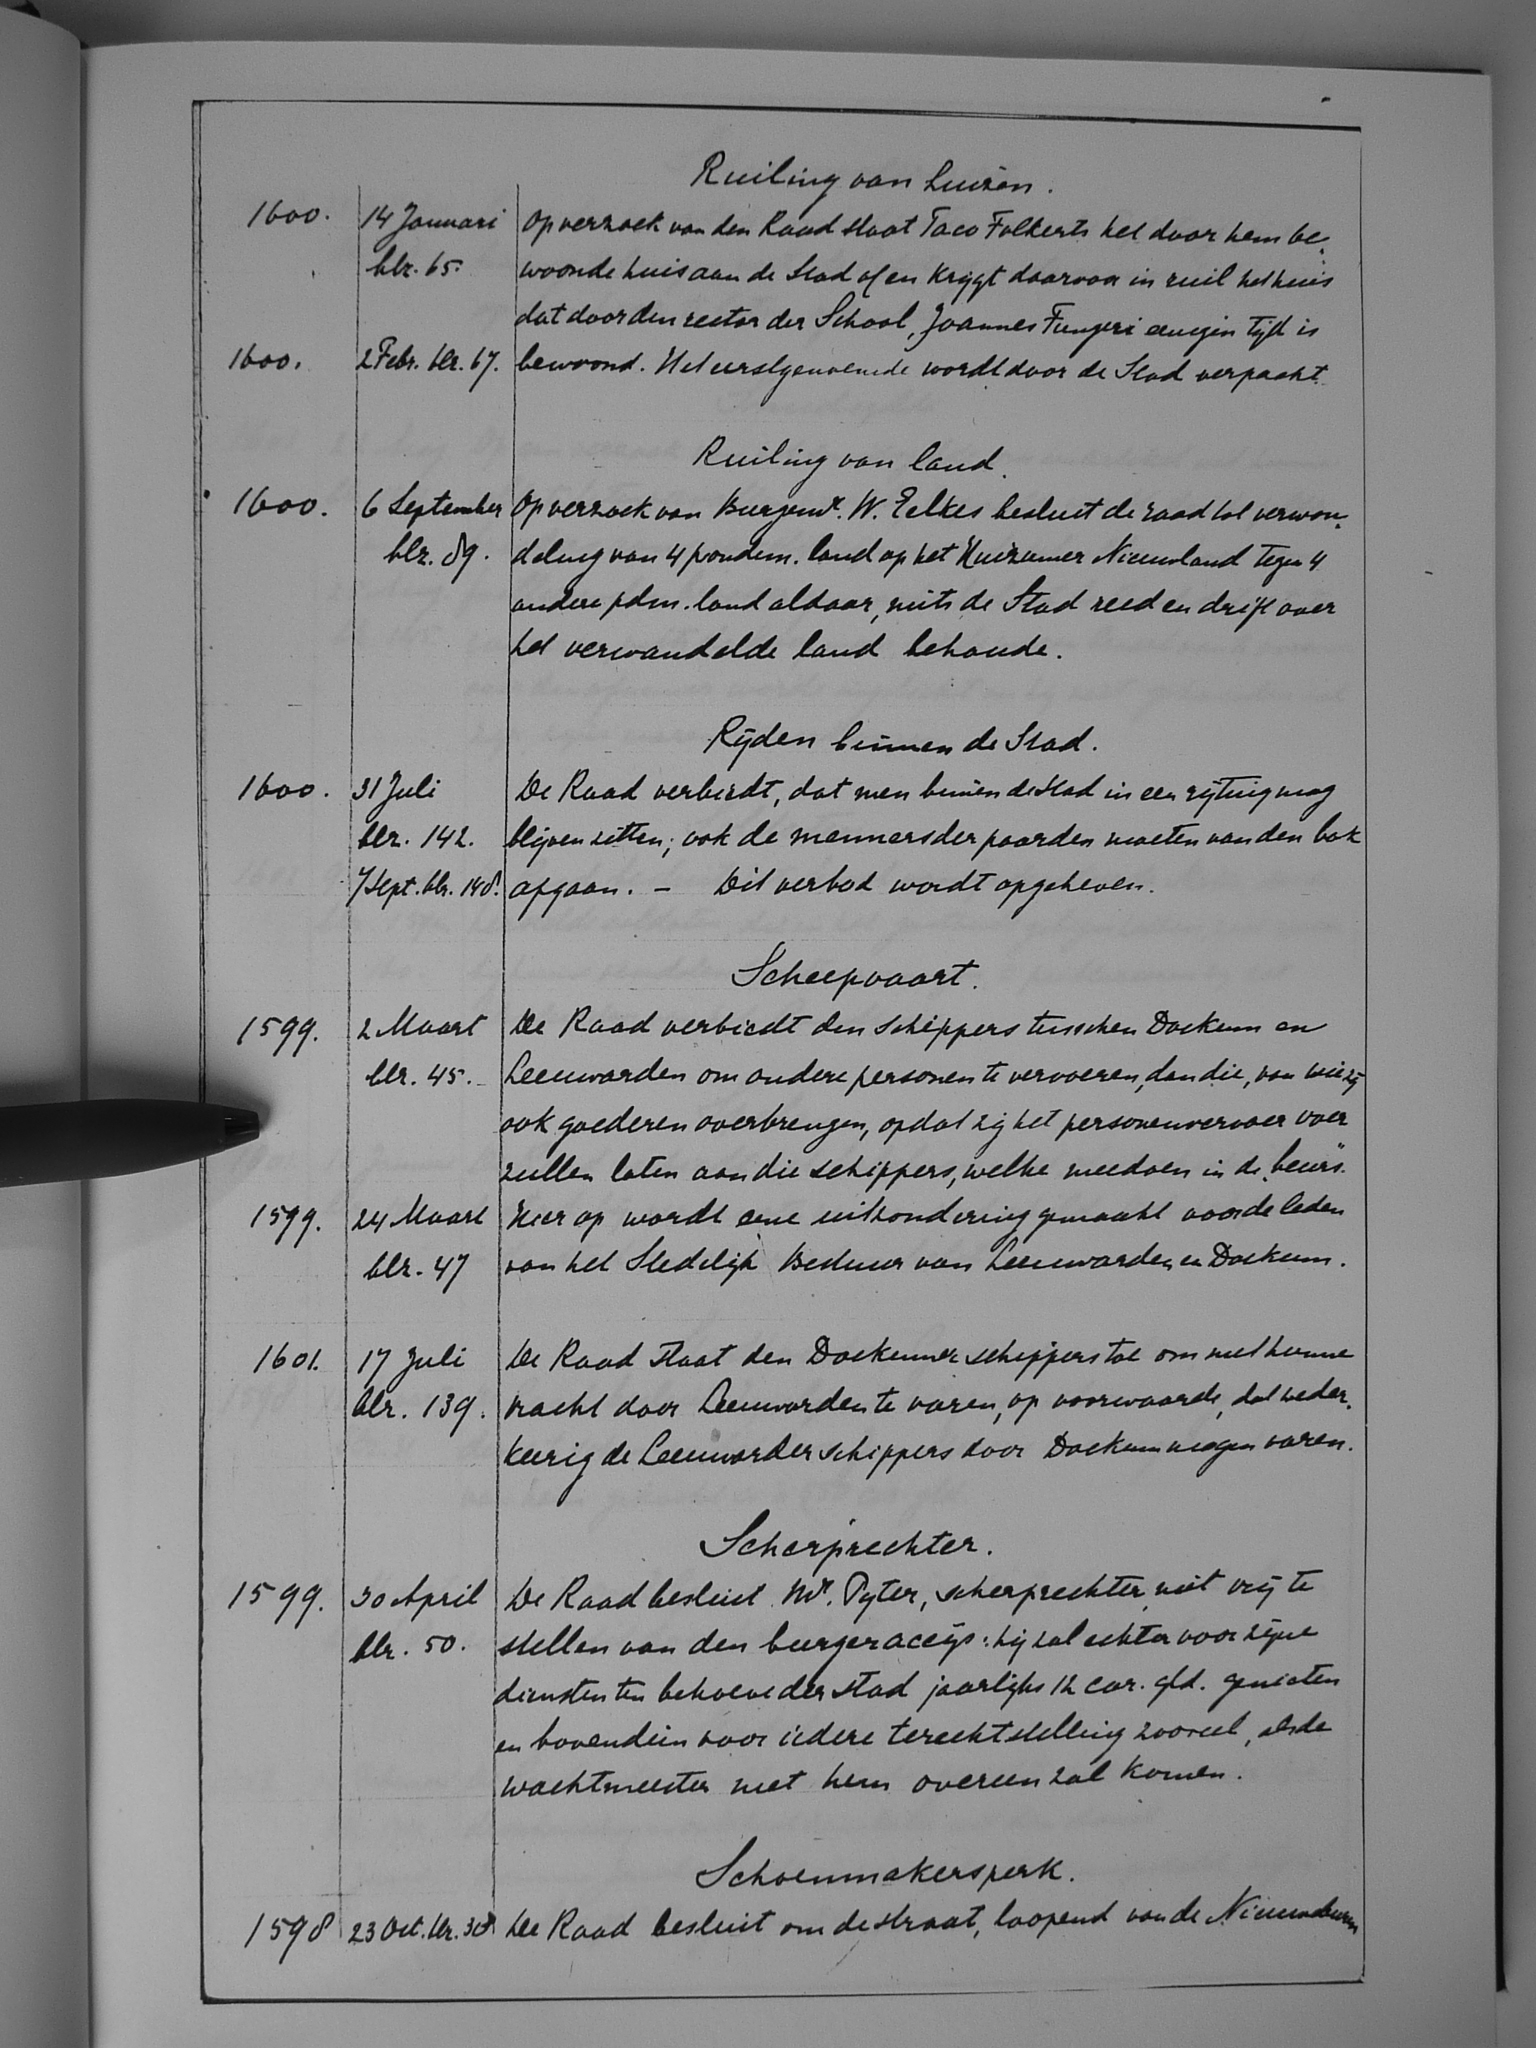 Ruiling van huizen.
1600. 14 Januari Op verzoek van den Raad staat Taco Folkerts het door hem be-
blz. 65. woonde huis aan de Stad af en krijgt daarvoor in ruil het huis
dat door den rector der School, Joannes Fungeri eenigen tijd is
1600. 2 Febr. blz. 67. bewoond. Het eerstgenoemde wordt door de Stad verpacht.
Ruiling van land.
1600. 6 September Op verzoek van Burgemr. W. Eelkes besluit de raad tot verwan-
blz. 89. deling van 4 pondem. land op het Huizumer Nieuwland tegen 4
andere pdm. land aldaar, mits de Stad reed en drift over
het verwandelde land behoude.
Rijden binnen de Stad.
1600. 31 Juli De Raad verbiedt, dat men binnen de stad in een rijtuig mag
blz. 142. blijven zitten; ook de menners der paarden moeten van den bok
7 Sept. blz. 148. afgaan. - Dit verbod wordt opgeheven.
Scheepvaart.
1599. 2 Maart De Raad verbiedt den schippers tusschen Dockum en
blz. 45. Leeuwarden om andere personen te vervoeren, dan die, van wie zij
ook goederen overbrengen, opdat zij het personenvervoer over
zullen laten aan die schippers, welke meedoen in de „beurs".
1599. 24 Maart Hier op wordt eene uitzondering gemaakt voor de leden
blz. 47 van het Stedelijk Bestuur van Leeuwarden en Dockum.
1601. 17 Juli De Raad staat den Dockummer schippers toe om met hunne
blz. 139. vracht door Leeuwarden te varen, op voorwaarde, dat weder-
keerig de Leeuwarder schippers door Dockum mogen varen.
Scherprechter.
1599. 30 April De Raad besluit Mr. Pyter, scherprechter, niet vrij te
blz. 50. stellen van den burgeraccijs: hij zal echter voor zijne
diensten ten behoeve der stad jaarlijks 12 car. gld. genieten
en bovendien voor iedere terechtstelling zooveel, als de
wachtmeester met hem overeen zal komen.
Schoenmakersperk.
1598 23 Oct. blz. De Raad besluit om de straat, loopend van de Nieuweburen